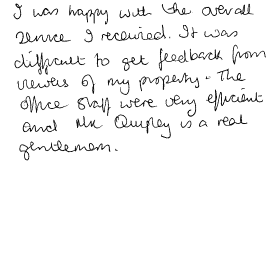 I was happy with the overall
service I received. It was
difficult to get feedback from
viewers of my property. The
office staff were very efficient
and Mr Quigley is a real
gentleman.